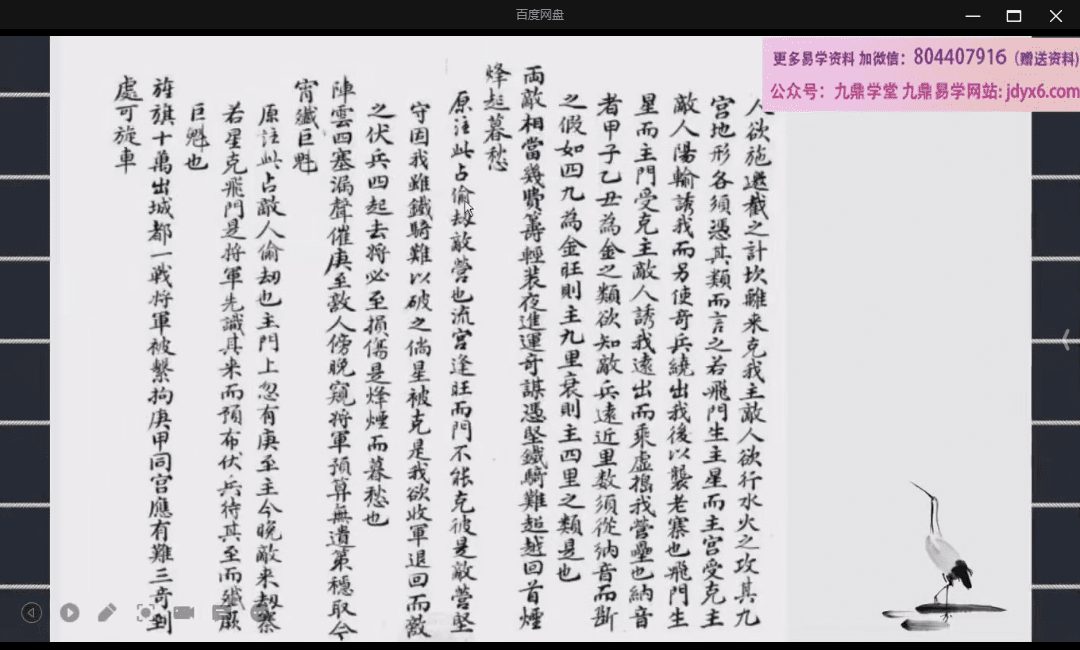 百度网盘
更多易学资料 加微信：804407916（赠送资料)
公众号：九鼎学堂 九鼎易学网站: jdyx6.com
人欲施邀截之計坎離来克我主敵人欲行水火之攻其九
宮地形各須憑其類而言之若飛門生主星而主宮受克主
敵人陽輸誘我而另使奇兵繞出我後以襲老寨也飛門生
星而主門受克主敵人誘我遠出而乘虛搗我營壘也納音
者甲子乙丑為金之類欲知敵兵遠近里数須從納音而斷
之假如四九為金旺則主九里衰則主四里之類是也
両敵相當幾費籌輕装夜進運奇謀憑堅鐵騎難超越回首煙
烽起暮愁
原注此占偷劫敵營也流宮逢旺而門不能克彼是敵營堅
守固我雖鐵騎難以破之倘星被克是我欲收軍退回而敵
之伏兵四起去將必至損傷是烽煙而暮愁也
陣雲四塞漏聲催庚至敵人傍晚窺将軍預算無遺策穩取今
宵殲巨魁
原注此占敵人偷劫也主門上忽有庚至主今晚敵来劫寨
若星克飛門是将軍先識其来而預布伏兵待其至而殲厥
巨魁也
旌旗十萬出城都一戰将軍被繫拘庚甲同宮應有難三奇到
處可旋車